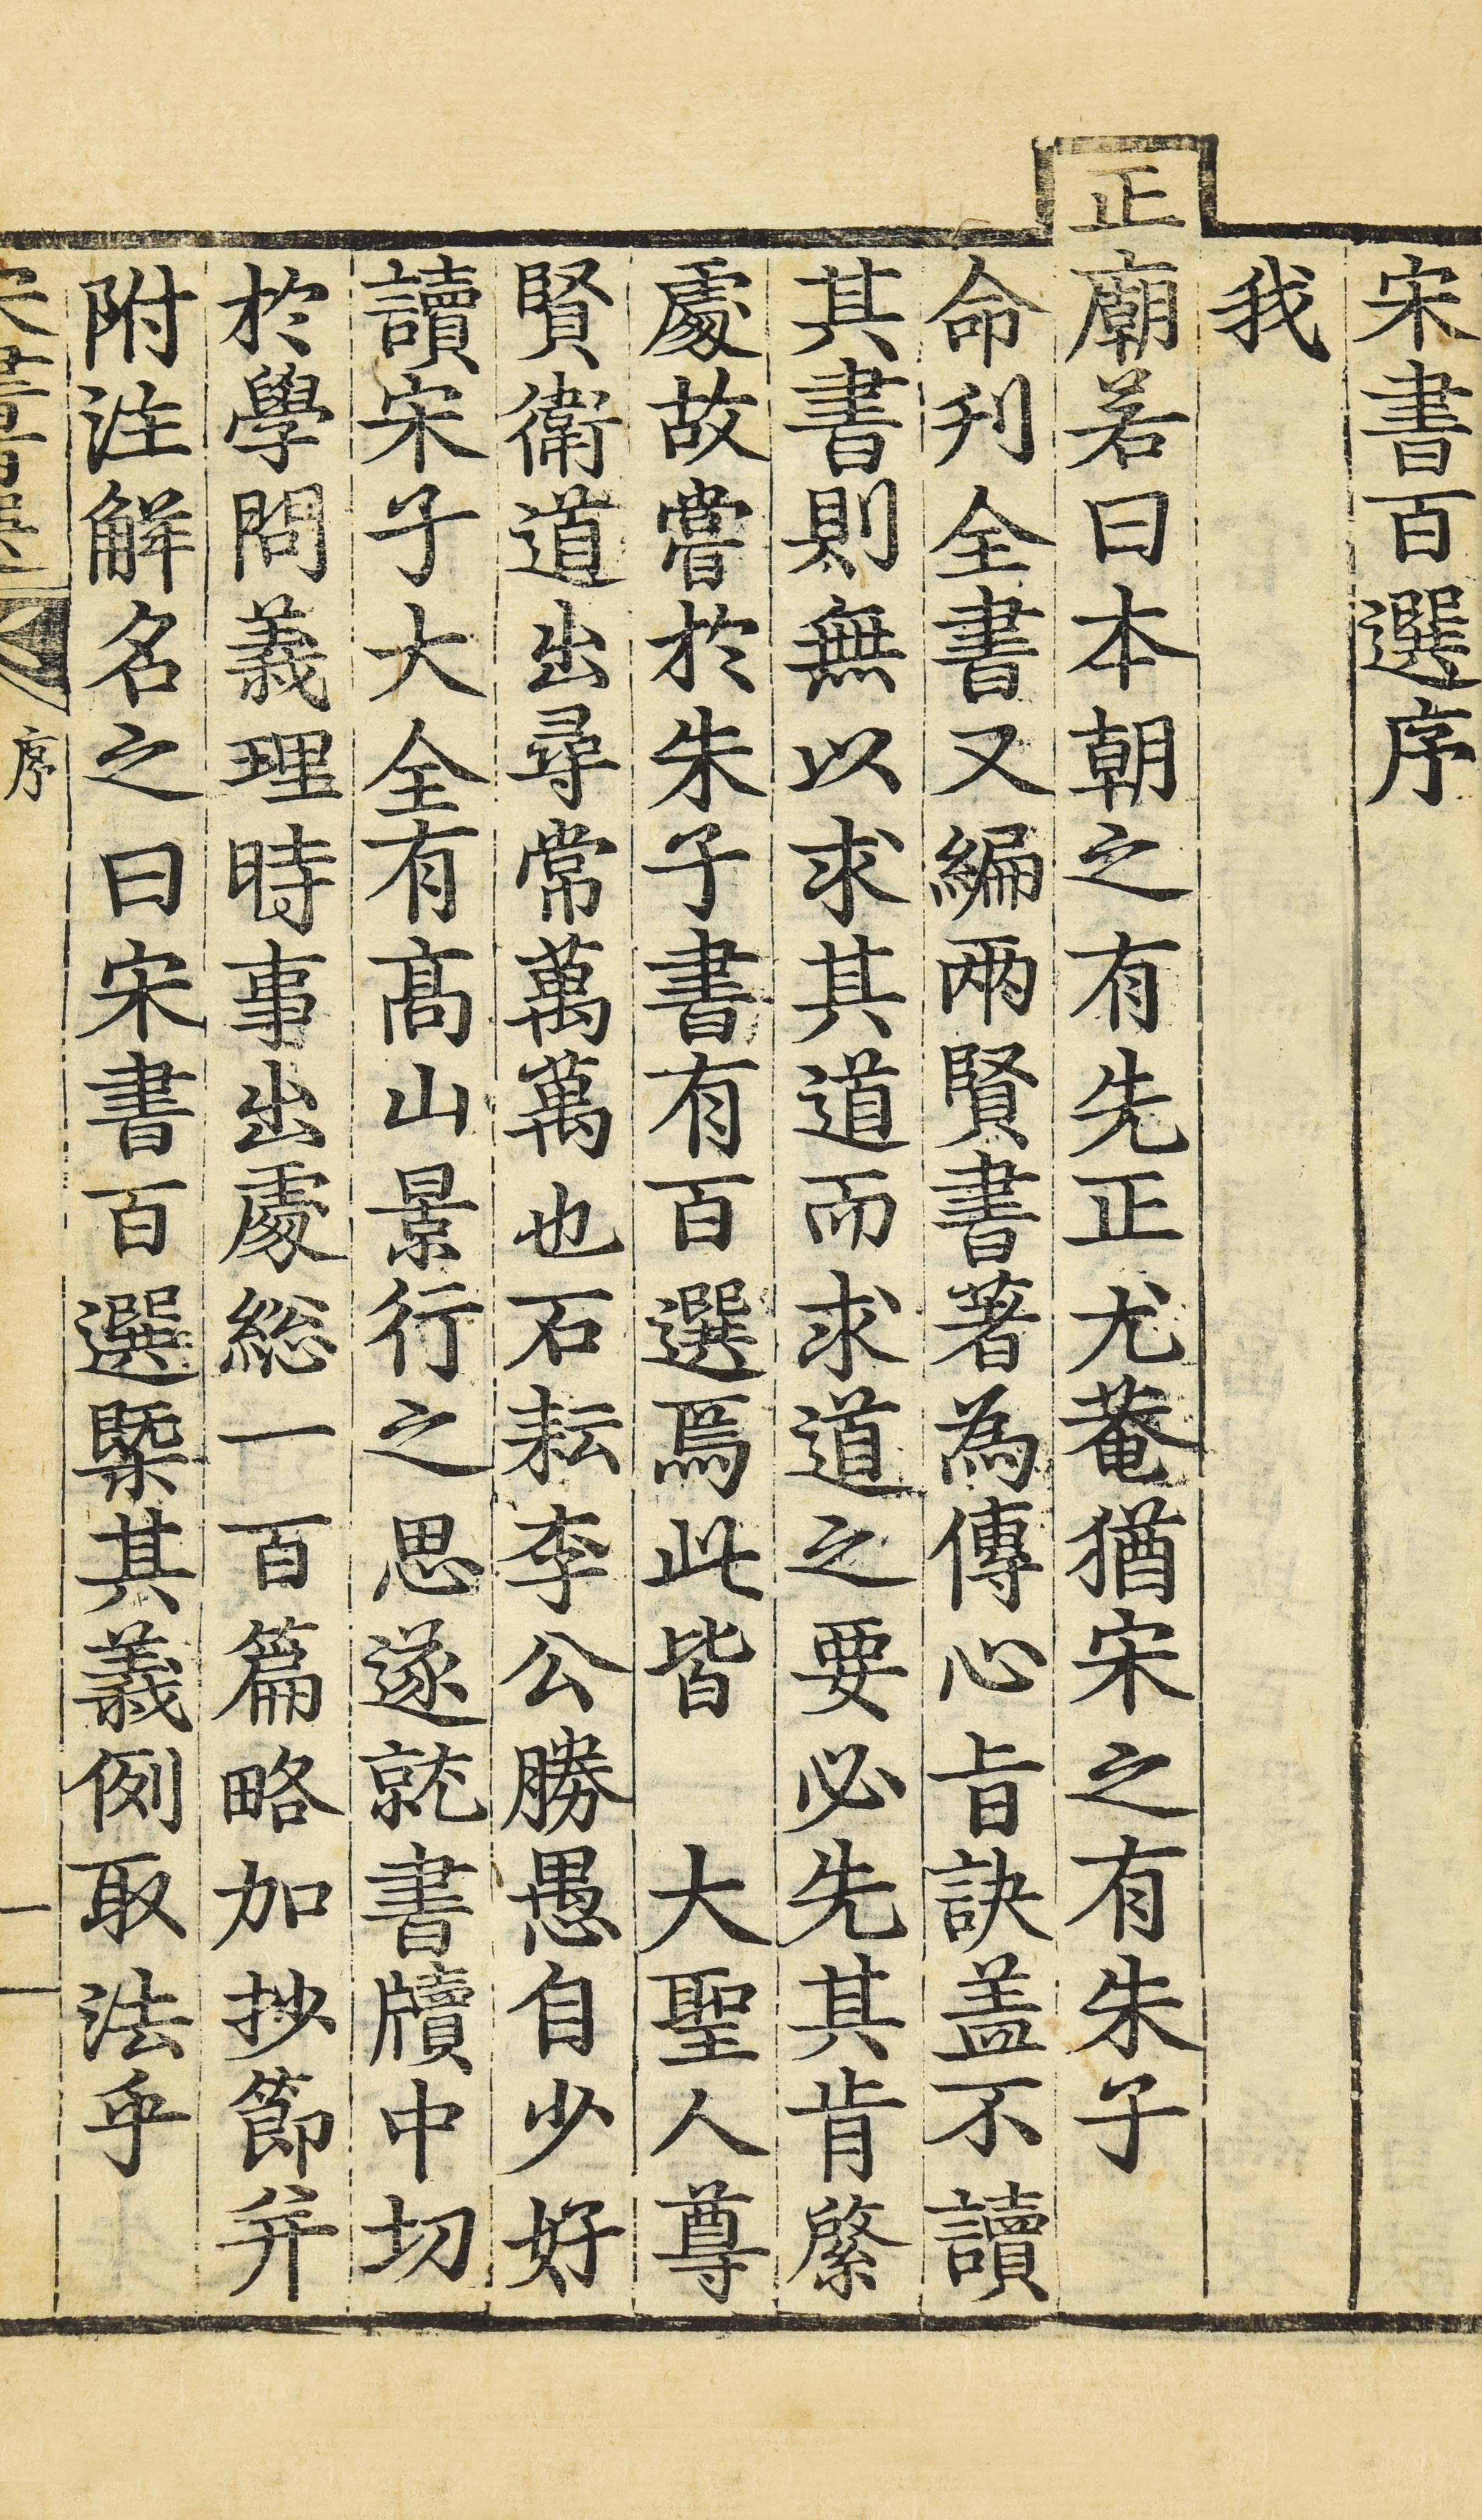 宋書百選序
我
正廟若曰本朝之有先正尤菴猶宋之有朱子
命刋全書又編兩賢書著為傳心旨訣盖不讀
其書則無以求其道而求道之要必先其肯綮
處故嘗於朱子書有百選焉此皆　大聖人尊
賢衛道出尋常萬萬也石耘李公勝愚自少好
讀宋子大全有高山景行之思遂就書牘中切
於學問義理時事出處総一百篇略加抄節并
附注解名之曰宋書百選槩其義例取法乎
宋書百選 序 一